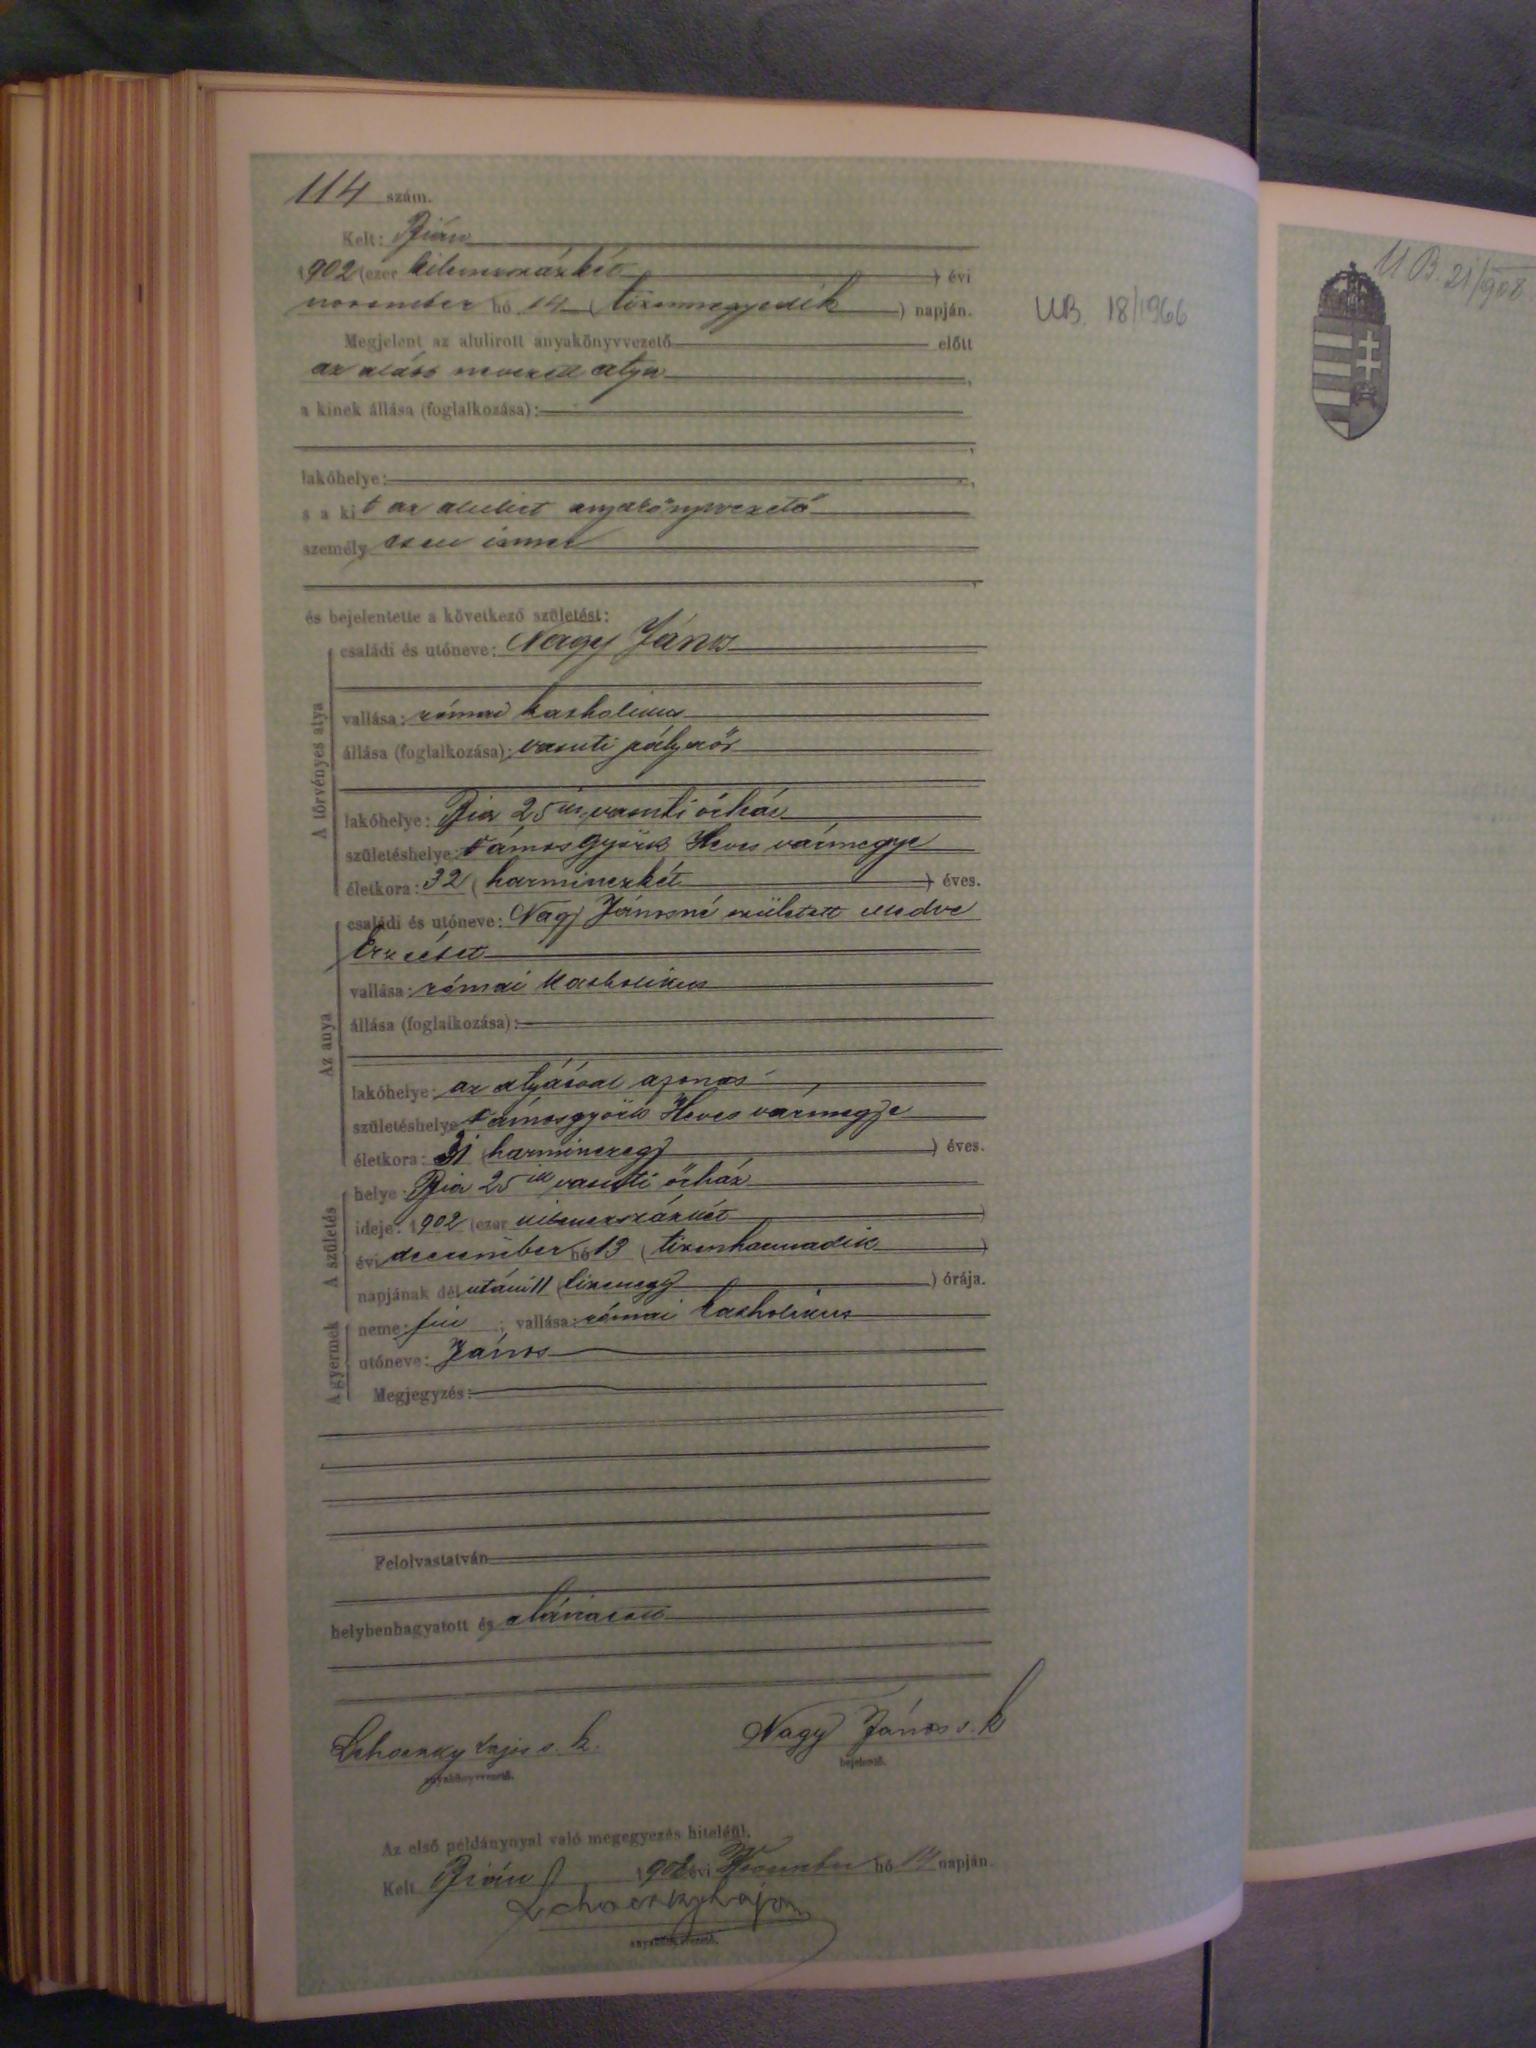 114 szám.
Kelt: Bián
1902 (ezer kilenczszázkét) évi
november hó 14 (tizennegyedik) napján.
UB. 18/1966
UB. 21/908
Megjelent az alulirott anyakönyvvezető előtt
az alább nevezett atya,
a kinek állása (foglalkozása):
lakóhelye:
s a kit az alulirt anyakönyvvezető
személyesen ismer
és bejelentette a következő születést:
A törvényes atya
családi és utóneve: Nagy János
vallása: római katholikus
állása (foglalkozása): vasuti pályaőr
lakóhelye: Bia 25 ik vasuti őrház
születéshelye: Vámosgyörk Heves vármegye
életkora: 32 (harminczkét) éves.
Az anya
családi és utóneve: Nagy Jánosné született Medve
Erzsébet
vallása: római katholikus
állása (foglalkozása):
lakóhelye: az atyáéval azonos
születéshelye: Vámosgyörk Heves vármegye
életkora: 31 (harminczegy) éves.
A születés
helye: Bia 25 ik vasuti őrház
ideje: 1902 (ezer kilenczszázkét)
évi deczember hó 13 (tizenharmadik)
napjának délutáni 11 (tizenegy) órája.
A gyermek
neme: fiu; vallása: római katholikus
utóneve: János
Megjegyzés:
Felolvastatván
helybenhagyatott és aláiratott
Lajos s. k. Nagy János s. k.
anyakönyvvezető. bejelentő.
Az első példánynyal való megegyezés hiteléül.
Kelt Bián 1902 évi November hó 14 napján.
Lajos
anyakönyvvezető.